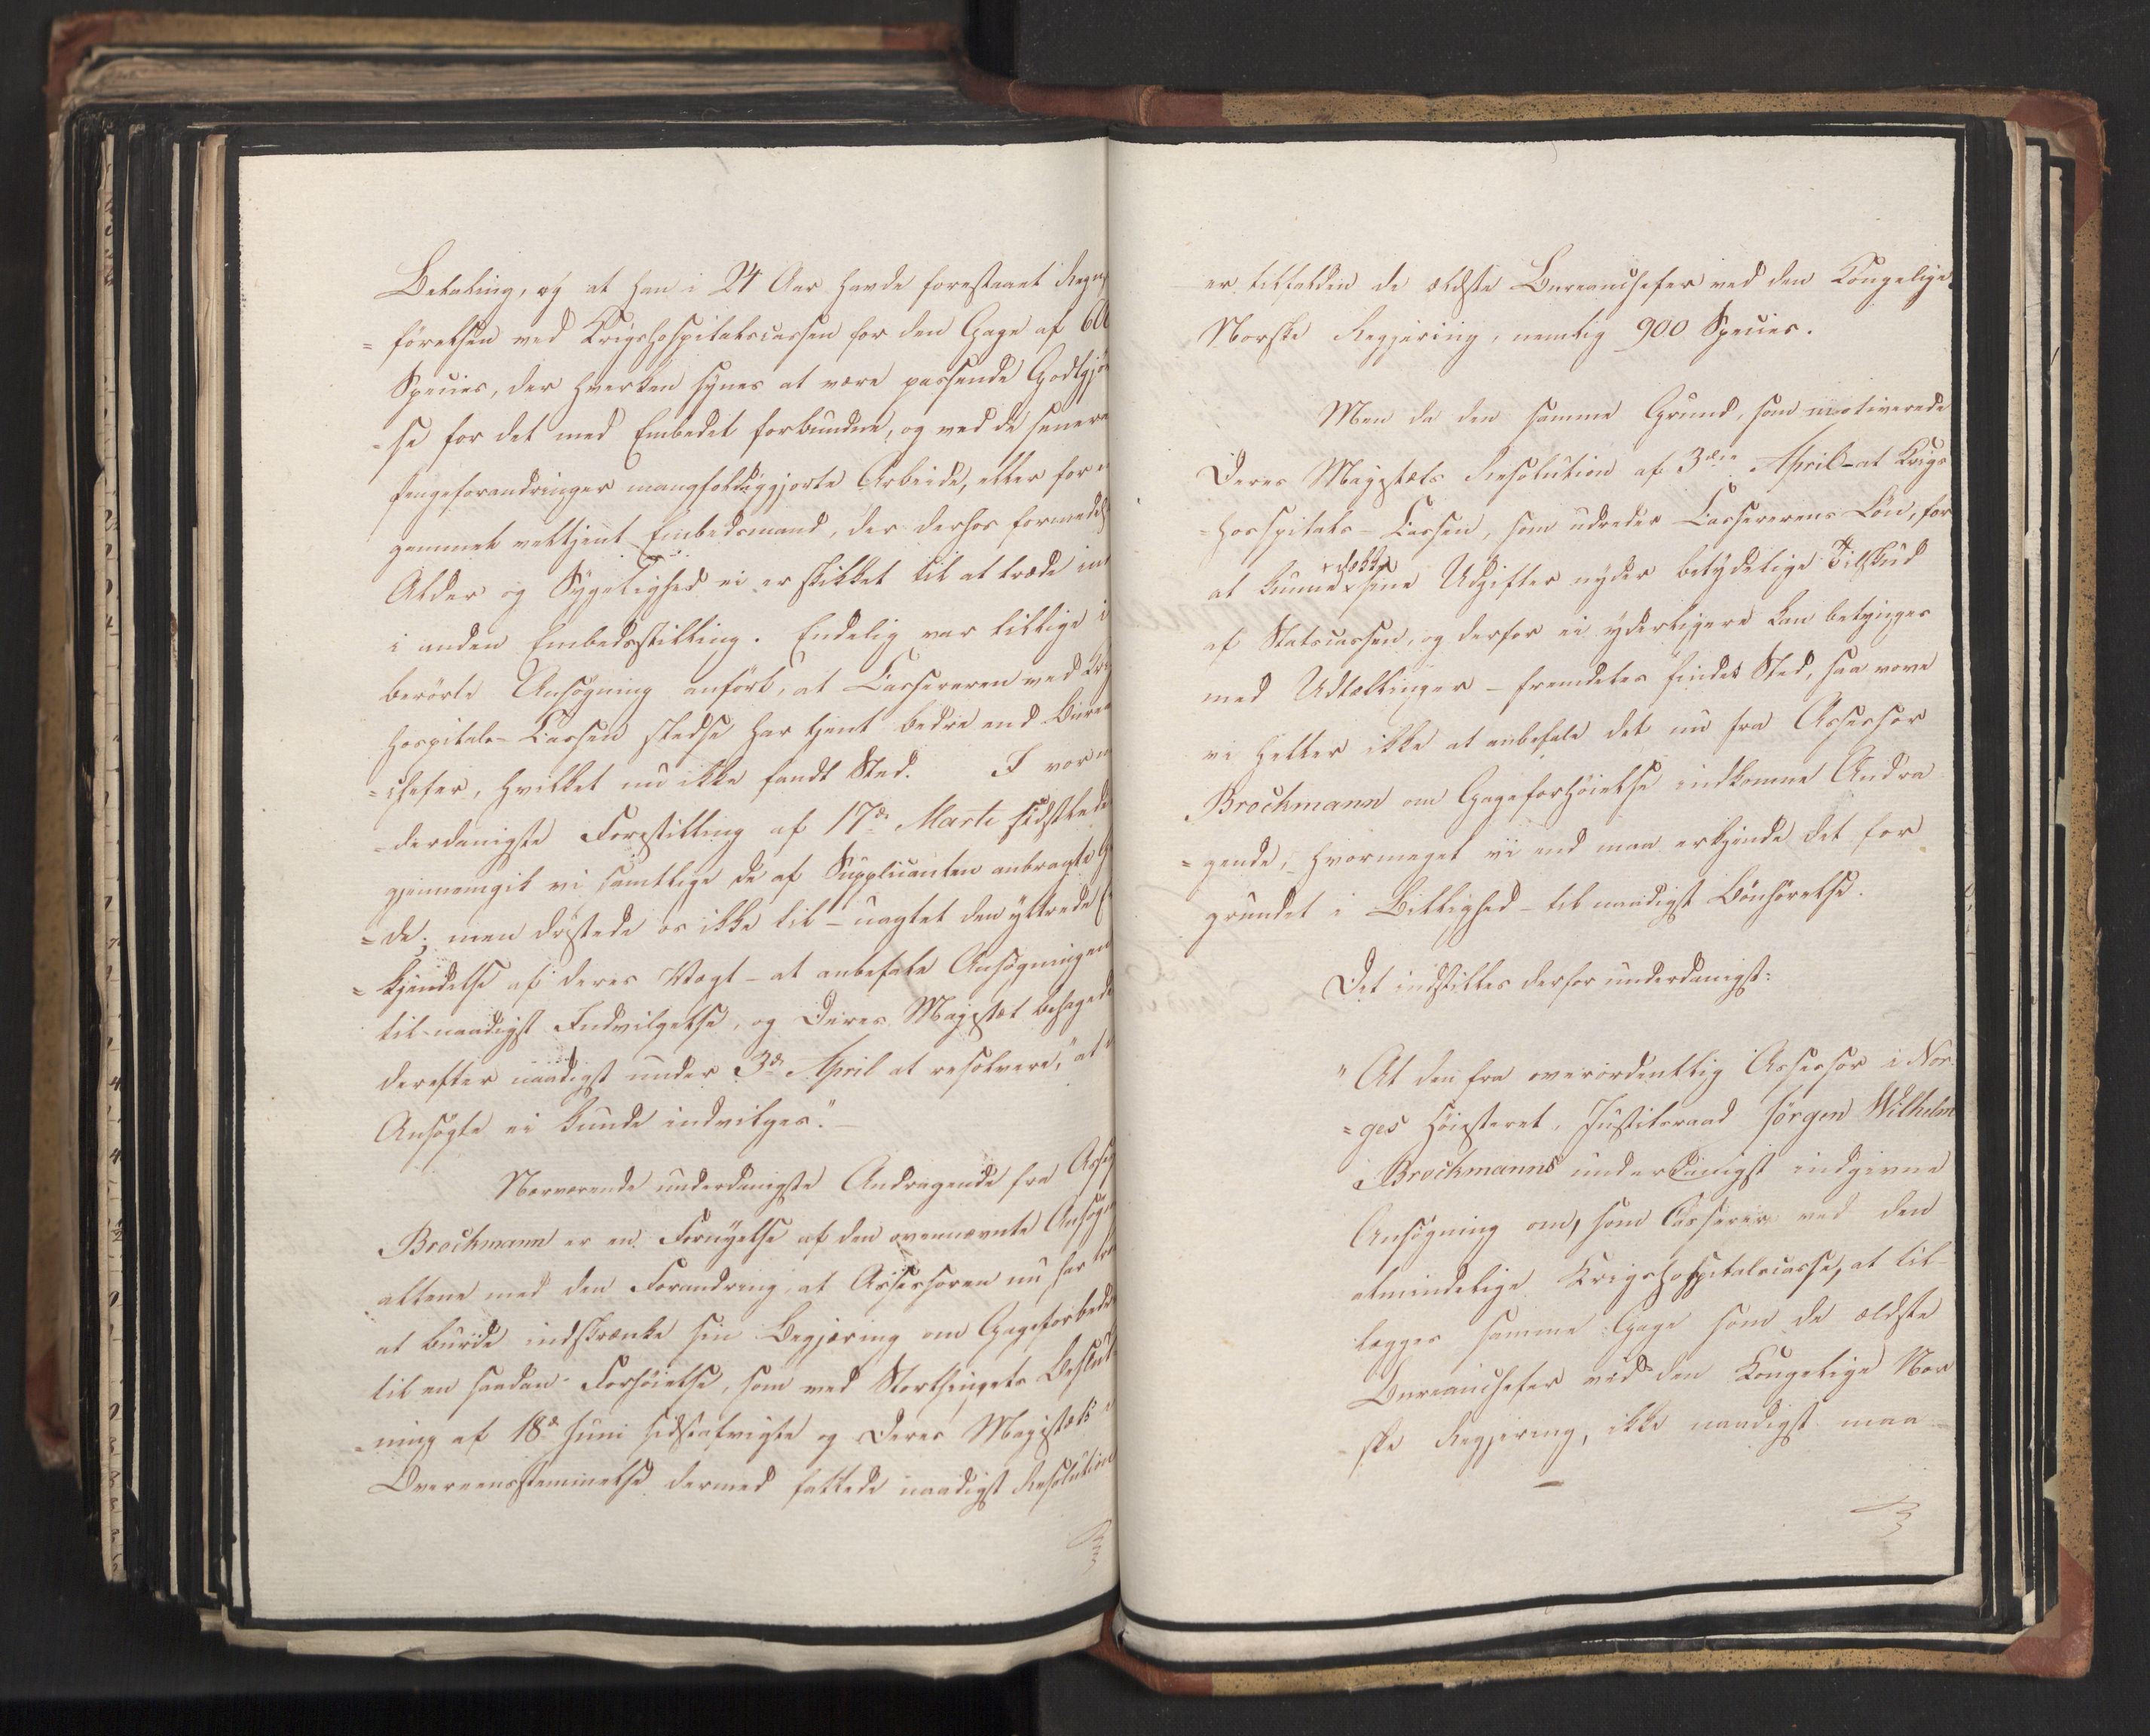 Betaling, og at han i 24 Aar havde forestaaet Regn
= förelsen ved Krigshospitalscassen for den Gage af 600
Species, der hverken synes at være passende Godtgjö
= se for det med Embedet forbundne, og ved de senere
Pengeforandringer mangfoldiggjorte Arbeide, eller for
gammel veltjent Embedsmand, der derhos formedelst
Alder og Sygelighed ei er skikket til at træde ind
i anden Embedsstilling. Endelig var tillige i
berörte Ansögning anfört, at Cassereren ved Krigs
hospitals-Cassen stedse har tjent bedre end Bureau
= chefer, hvilket nu ikke fandt Sted. I vor un
= derdanigste Forestilling af 17de Marti sidstleden
gjennemgik vi samtlige de af Supplicanten anbragte Grun
= de; men dristede os ikke til - uagtet den yttrede Er
= kjendelse af deres Vægt - at anbefale Ansögningen
til naadigst Indvilgelse, og Deres Majestæt behagede
derefter naadigst under 3de April at resolvere, "at det
Ansögte ei kunde indvilges". -
Nærværende underdanigste Andragende fra Assessor
Brockmann er en Fornyelse af den ovennævnte Ansög
allene med den Forandring, at Assessoren nu har troet
at burde indskrænke sin Begjæring om Gageforbedring
til en saadan Forhöielse, som ved Storthingets Beslut
= ning af 18de Juni sidstafvigte og Deres Majestæts i
Overeensstemmelse dermed fattede naadigst Resolution
er tilfalden de ældste Bureauchefer ved den Kongelige
Norske Regjering, nemlig 900 Species.
Men da den samme Grund, som motiverede
Deres Majestæts Resolution af 3die April - at Krigs
= hosspitals-Cassen, som udreder Cassererens Lön, for
at kunne dække sine Udgifter nyder betydelige Tilskud
af Statscassen, og derfor ei yderligere kan betynges
med Udtællinger - fremdeles finder Sted, saa vove
vi heller ikke at anbefale det nu fra Assessor
Brockmann om Gageforhöielse indkomne Andra
= gende, - hvormeget vi end maa erkjende det for
grundet i Billighed - til naadigst Bönhörelse.
Det indstilles derfor underdanigst:
"At den fra overordentlig Assessor i Nor
= ges Höiesteret, Justitsraad Jörgen Wilhelm
Brockmanns underdanigst indgivne
Ansögning om, som Casserer ved den
almindelige Krigshospitalscasse, at til-
lægges samme Gage som de ældste
Bureauchefer ved den Kongelige Nor
= ske Regjering, ikke naadigst maa